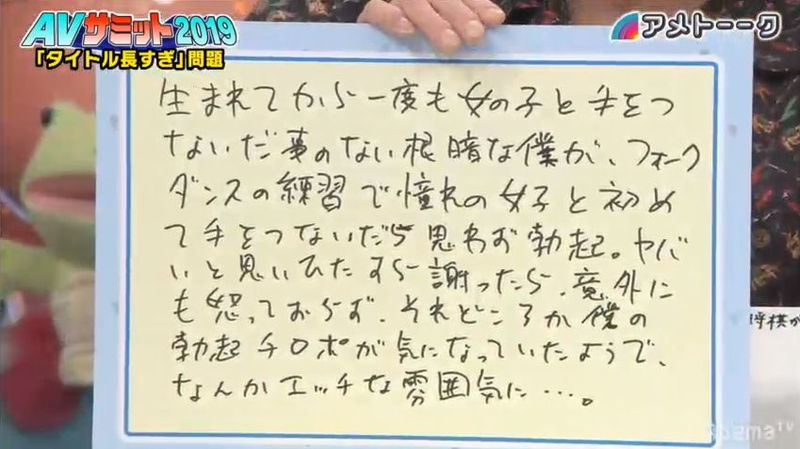 AVサミット2019
「タイトル長すぎ」問題
アメトーーク
生まれてから一度も女の子と手をつ
ないだ事のない根暗な僕が、フォーク
ダンスの練習で憧れの女子と初め
て手をつないだら思わず勃起。ヤバ
いと思いひたすら謝ったら、意外に
も怒っておらず、それどころか僕の
勃起チロポが気になっていたようで、
なんかエッチな雰囲気に…。
将棋が
AbemaTV